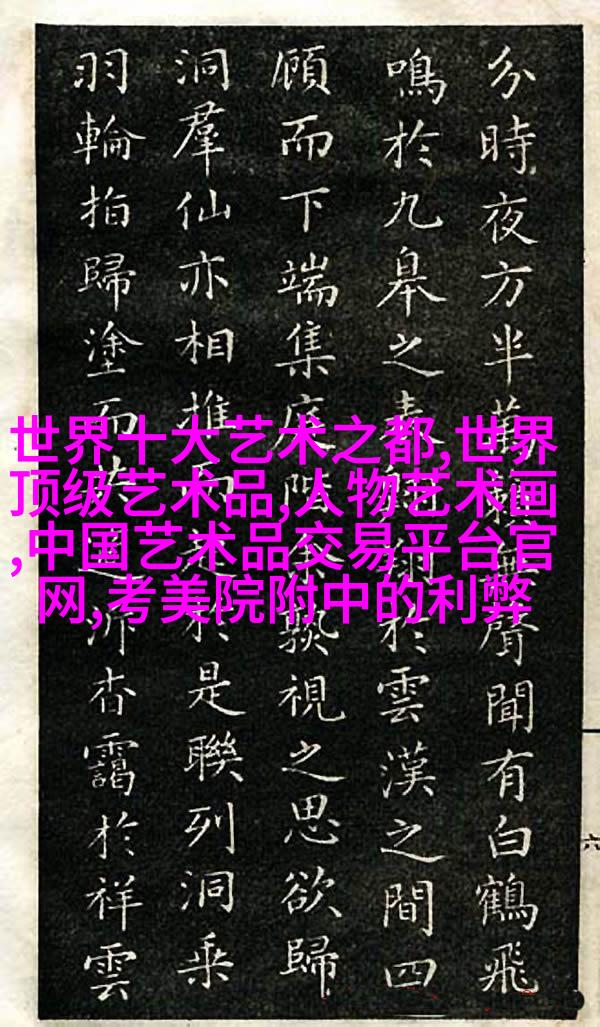 分時夜方半萬籟無聲聞有白鶴飛
鳴於九皋之表翱翔於雲漢之間四
顧而下端集庭階余熟視之思欲歸
洞羣仙亦相推而於是聯列洞乗
羽輪指歸塗而杳靄於祥雲
世界十大艺术之都,世界
顶级艺术品,人物艺术画
,中国艺术品交易平台官
网,考美院附中的利弊
六